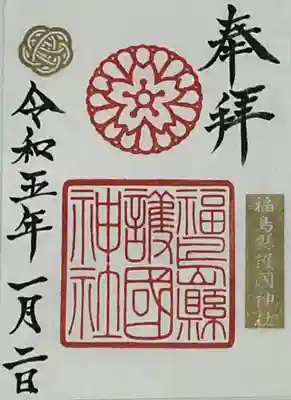 奉拝
福島縣護國神社
福島縣
護國
神社
令和五年一月二日